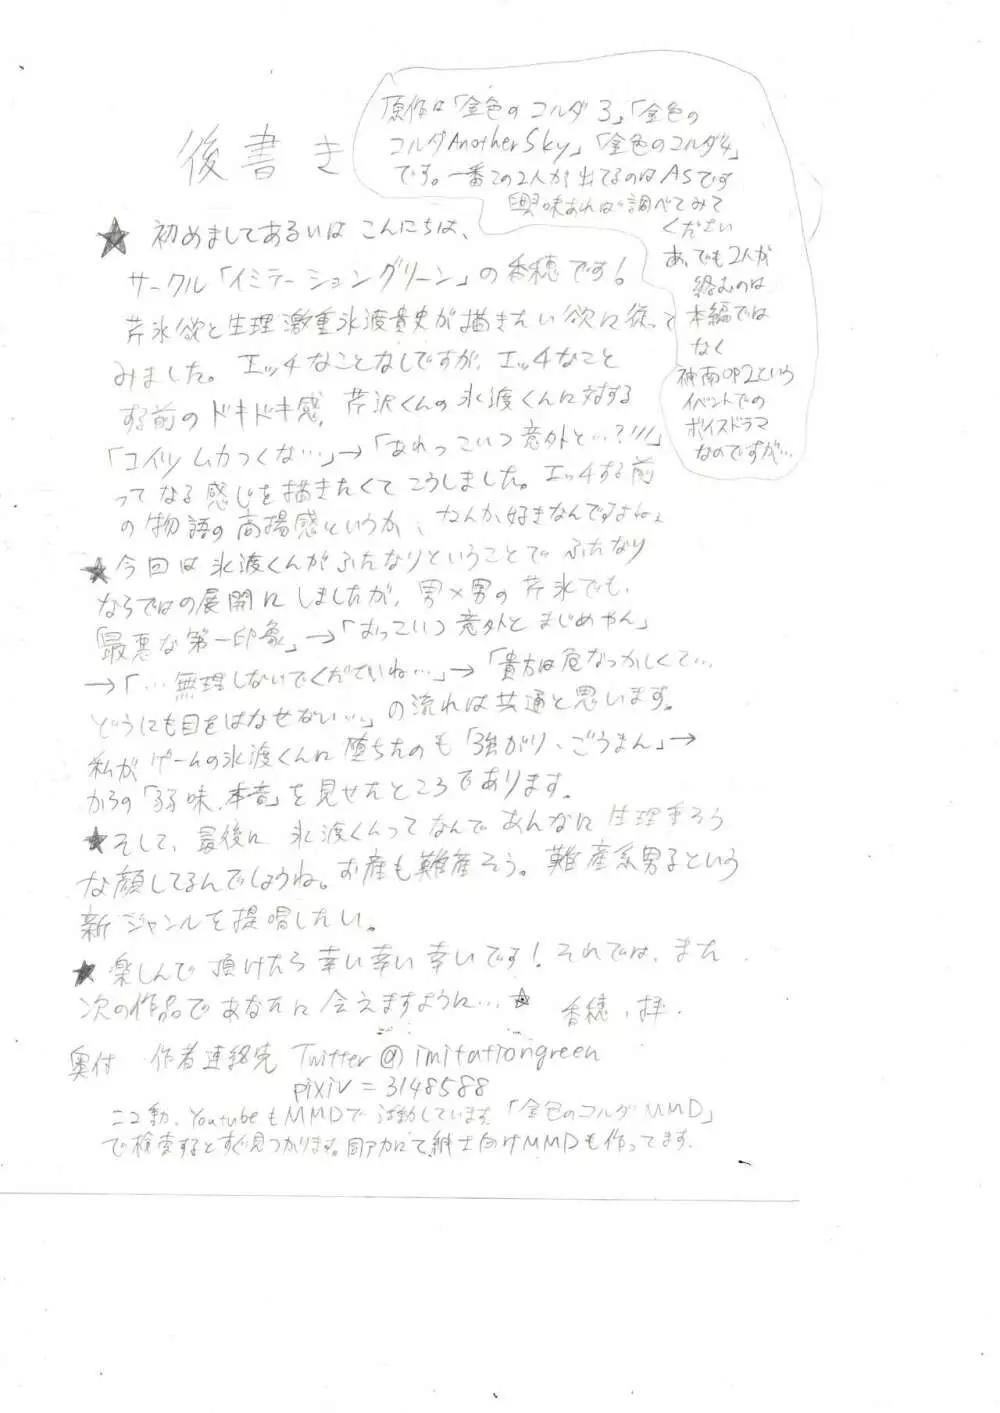 後書き
原作は「金色のコルダ3」「金色の
コルダAnotherSky」「金色のコルダ4」
です。一番この2人が出てるのはASです
興味あれば調べてみて
ください
あ、でも2人が
絡むのは
本編では
なく
神南OP2という
イベントでの
ボイスドラマ
なのですが…
★ 初めましてあるいはこんにちは、
サークル「イミテーショングリーン」の香穂です!
芹氷欲と生理激重氷渡貴史が描きたい欲に従って
みました。エッチなことなしですが、エッチなこと
する前のドキドキ感、芹沢くんの氷渡くんに対する
「コイツムカつくな…」→「あれっこいつ意外と…?!!!」
ってなる感じを描きたくてこうしました。エッチする前
の物語の高揚感というか、なんか好きなんですよね。
★今回は氷渡くんがふたなりということでふたなり
ならではの展開にしましたが、男×男の芹氷でも、
「最悪な第一印象」→「おっこいつ意外とまじめやん」
→「…無理しないでくださいね…」→「貴方は危なっかしくて…
どうにも目をはなせない…」の流れは共通と思います。
私がゲームの氷渡くんに堕ちたのも「強がり、ごうまん」→
からの「弱味、本音」を見せたところであります。
★そして、最後に氷渡くんってなんであんなに生理重そう
な顔してるんでしょうね。お産も難産そう。難産系男子という
新ジャンルを提唱したい。
★楽しんで頂けたら幸い幸い幸いです!それでは、また
次の作品であなたに会えますように…☆ 香穂、拝.
奥付 作者連絡先 Twitter@imitationgreen
pixiv=3148588
ニコ動、YoutubeもMMDで活動しています。「金色のコルダMMD」
で検索するとすぐ見つかります。同アカにて紳士向けMMDも作ってます。